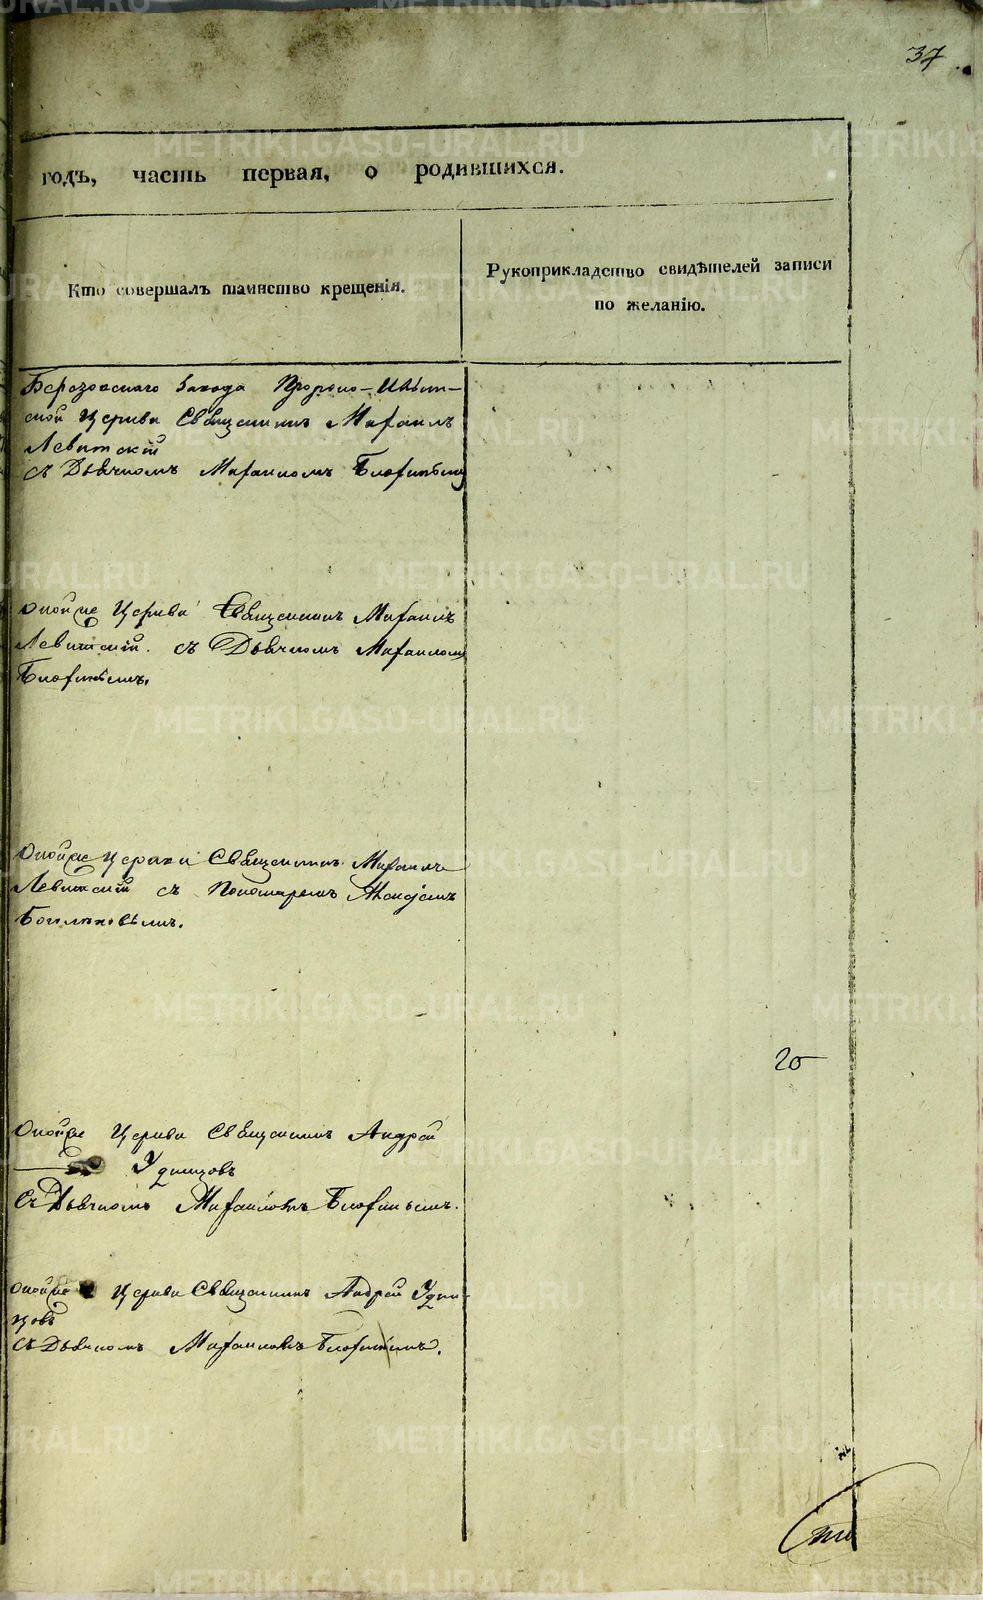 37
годъ, часть первая, о родившихся.
Кто совершалъ таинство крещенія.
Рукоприкладство свидѣтелей записи
по желанію.
Березовскаго Завода Пророко-Ильин-
ской Церкви Священникъ Михаилъ
Левитскій
съ Дьячкомъ Михаиломъ
Оной же Церкви Священникъ Михаилъ
Левитскій. съ Дьячкомъ Михаиломъ
Оной же Церкви Священникъ Михаилъ
Левитскій съ Пономаремъ
Оной же Церкви Священникъ Андрей
Удинцовъ
Съ Дьячкомъ
Оной же Церкви Священникъ Андрей Удин-
цовъ
съ Дьячкомъ
METRIKI.GASO-URAL.RU